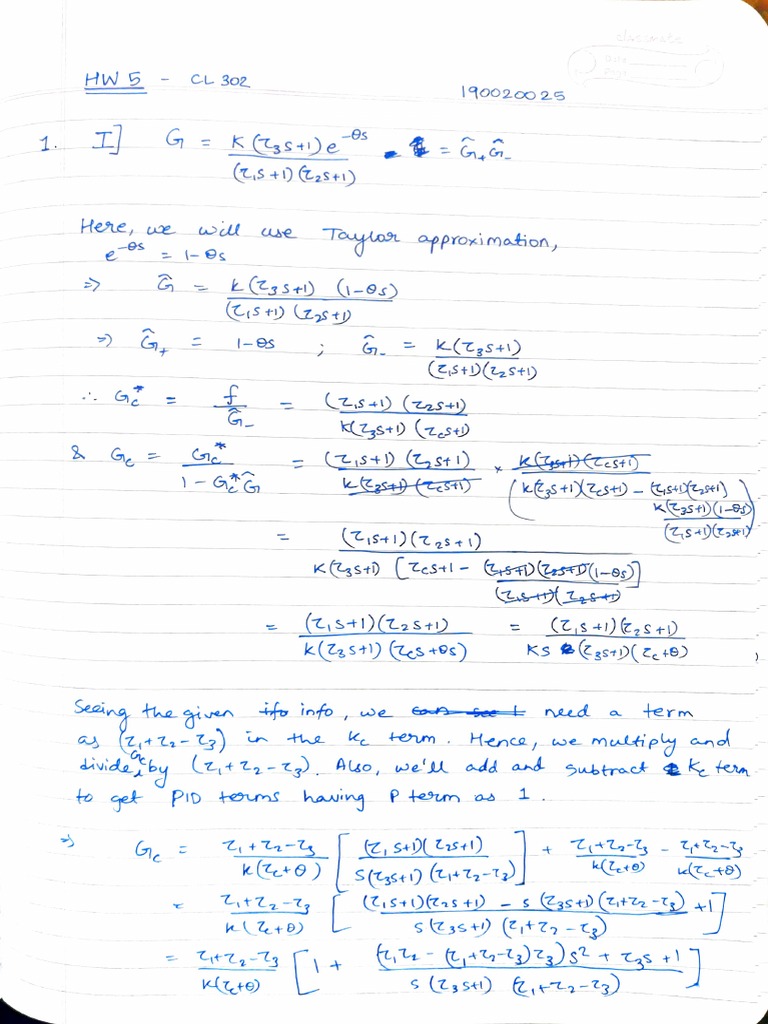 classmate
Date
Page
HW 5 - CL 302
190020025
1. I] G = K(τ₃s+1)e^{-θs} / (τ₁s+1)(τ₂s+1) = Ĝ₊Ĝ₋
Here, we will use Taylor approximation,
e^{-θs} = 1-θs
⇒ Ĝ = K(τ₃s+1) (1-θs) / (τ₁s+1) (τ₂s+1)
⇒ Ĝ₊ = 1-θs ; Ĝ₋ = K(τ₃s+1) / (τ₁s+1)(τ₂s+1)
∴ Gc* = f / Ĝ₋ = (τ₁s+1) (τ₂s+1) / K(τ₃s+1) (τcs+1)
& Gc = Gc* / 1 - Gc*Ĝ = (τ₁s+1) (τ₂s+1) / K(τ₃s+1) (τcs+1) × K(τ₃s+1)(τcs+1) / (K(τ₃s+1)(τcs+1) - (τ₁s+1)(τ₂s+1) K(τ₃s+1)(1-θs) / (τ₁s+1)(τ₂s+1))
= (τ₁s+1)(τ₂s+1) / K(τ₃s+1) [τcs+1 - (τ₁s+1)(τ₂s+1)(1-θs) / (τ₁s+1)(τ₂s+1)]
= (τ₁s+1)(τ₂s+1) / K(τ₃s+1) (τcs+θs) = (τ₁s+1)(τ₂s+1) / Ks (τ₃s+1)(τc+θ) ,
Seeing the given info, we need a term
as (τ₁+τ₂-τ₃) in the Kc term. Hence, we multiply and
divide Gc by (τ₁+τ₂-τ₃). Also, we'll add and subtract Kc term
to get PID terms having P term as 1.
⇒ Gc = τ₁+τ₂-τ₃ / K(τc+θ) [(τ₁s+1)(τ₂s+1) / s(τ₃s+1) (τ₁+τ₂-τ₃)] + τ₁+τ₂-τ₃ / K(τc+θ) - τ₁+τ₂-τ₃ / K(τc+θ)
= τ₁+τ₂-τ₃ / K(τc+θ) [(τ₁s+1)(τ₂s+1) - s(τ₃s+1)(τ₁+τ₂-τ₃) / s(τ₃s+1) (τ₁+τ₂-τ₃) +1]
= τ₁+τ₂-τ₃ / K(τc+θ) [1 + (τ₁τ₂ - (τ₁+τ₂-τ₃)τ₃)s² + τ₃s +1 / s(τ₃s+1) (τ₁+τ₂-τ₃)]